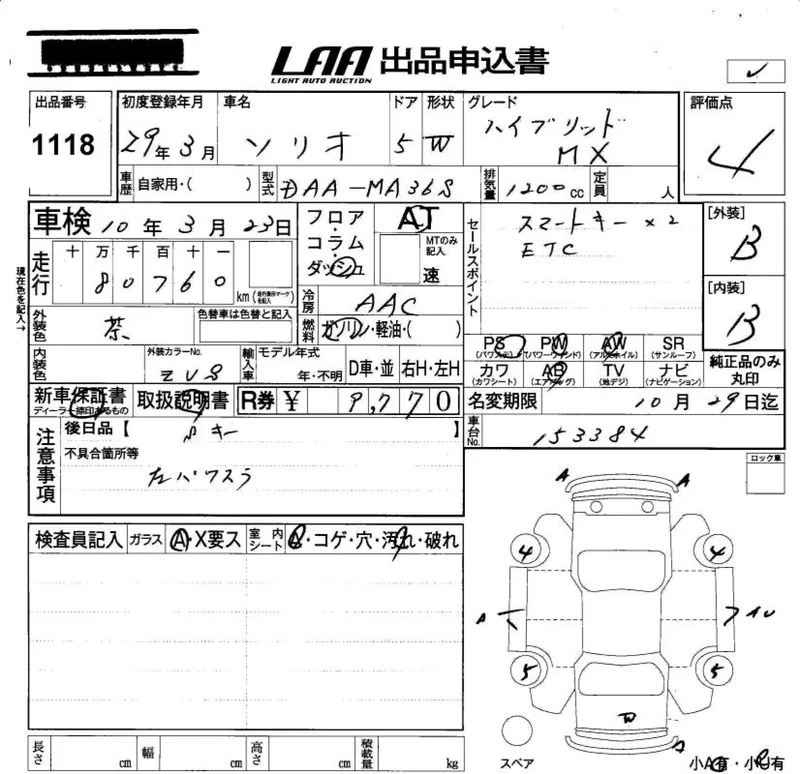 LAA 出品申込書
LIGHT AUTO AUCTION
出品番号 1118
初度登録年月 29年3月
車名 ソリオ
ドア 5
形状 W
グレード ハイブリッド MX
評価点 4
車歴 自家用・( )
型式 DAA-MA36S
排気量 1200cc
定員 人
車検 10年3月23日
フロア・コラム・ダッシュ
AT
MTのみ記入 速
セールスポイント
スマートキー×2
ETC
[外装] B
[内装] B
現在色を記入→
走行 十万千百十一
80760 km (走行表示マークを記入)
冷房 AAC
燃料 ガソリン・軽油・( )
外装色 茶
色替車は色替と記入
PS (パワステ) PW (パワーウィンド) AW (アルミホイル) SR (サンルーフ)
カワ (カワシート) AB (エアバッグ) TV (地デジ) ナビ (ナビゲーション)
純正品のみ丸印
内装色
外装カラーNo. ZVS
輸入車 モデル年式 年・不明
D車・並 右H・左H
新車保証書 ディーラー捺印あるもの
取扱説明書
R券 ¥ 9,770
名変期限 10月29日迄
車台No. 153384
注意事項
後日品【 キー 】
不具合箇所等
左パワスラ
ロック車
検査員記入
ガラス A・X要ス
室内シート コゲ・穴・汚れ・破れ
A A
4 4
A AU
5 5
W
スペア
小A有・小U有
長さ cm 幅 cm 高さ cm 積載量 kg